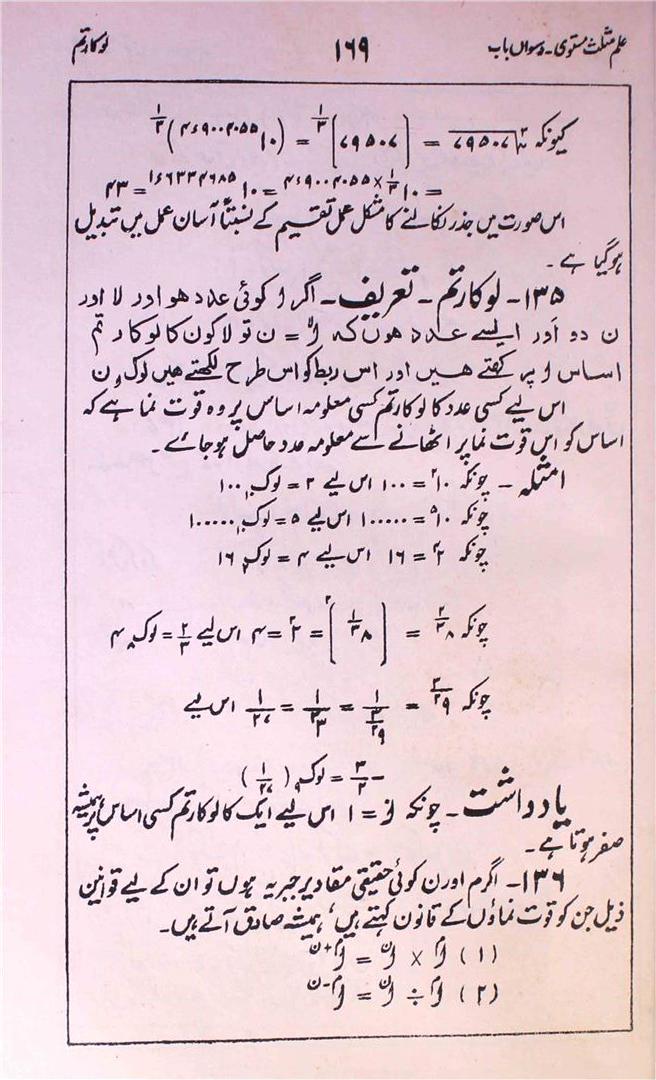 علم مثلث مستوی ۔ دسواں باب ۱۶۹ لوکارتم
کیونکہ ∛۷۹۵۰۷ = [۷۹۵۰۷]^(۱/۳) = (۱۰^۴٫۹۰۰۴۰۵۵)^(۱/۳)
= ۱۰^(۴٫۹۰۰۴۰۵۵ × ۱/۳) = ۱۰^۱٫۶۳۳۴۶۸۵ = ۴۳
اس صورت میں جذر نکالنے کا مشکل عمل تقسیم کے نسبتاً آسان عمل میں تبدیل
ہوگیا ہے ۔
۱۳۵ ۔ لوکارتم ۔ تعریف ۔ اگر ا کوئی عدد ہو اور لا اور
ن دو اَور ایسے عدد ہوں کہ ا^لا = ن تو لا کو ن کا لوکارتم
اساس ا پر کہتے ہیں اور اس ربط کو اس طرح لکھتے ہیں لوک_ا ن
اس لیے کسی عدد کا لوکارتم کسی معلومہ اساس پر وہ قوت نما ہے کہ
اساس کو اس قوت نما پر اٹھانے سے معلومہ عدد حاصل ہوجائے ۔
امثلہ ۔ چونکہ ۱۰^۲ = ۱۰۰ اس لیے ۲ = لوک_۱۰ ۱۰۰
چونکہ ۱۰^۵ = ۱۰۰۰۰۰ اس لیے ۵ = لوک_۱۰ ۱۰۰۰۰۰
چونکہ ۲^۴ = ۱۶ اس لیے ۴ = لوک_۲ ۱۶
چونکہ ۸^(۲/۳) = [۸^(۱/۳)]^۲ = ۲^۲ = ۴ اس لیے ۲/۳ = لوک_۸ ۴
چونکہ ۹^(-۳/۲) = ۱/۹^(۳/۲) = ۱/۳^۳ = ۱/۲۷ اس لیے
-۳/۲ = لوک_۹ (۱/۲۷)
یادداشت ۔ چونکہ ا^۰ = ۱ اس لیے ایک کا لوکارتم کسی اساس پر ہمیشہ
صفر ہوتا ہے ۔
۱۳۶ ۔ اگر م اور ن کوئی حقیقی مقادیر جبریہ ہوں تو ان کے لیے قوانین
ذیل جن کو قوت نماؤں کے قانون کہتے ہیں، ہمیشہ صادق آتے ہیں ۔
(۱) ا^م × ا^ن = ا^(م+ن)
(۲) ا^م ÷ ا^ن = ا^(م-ن)